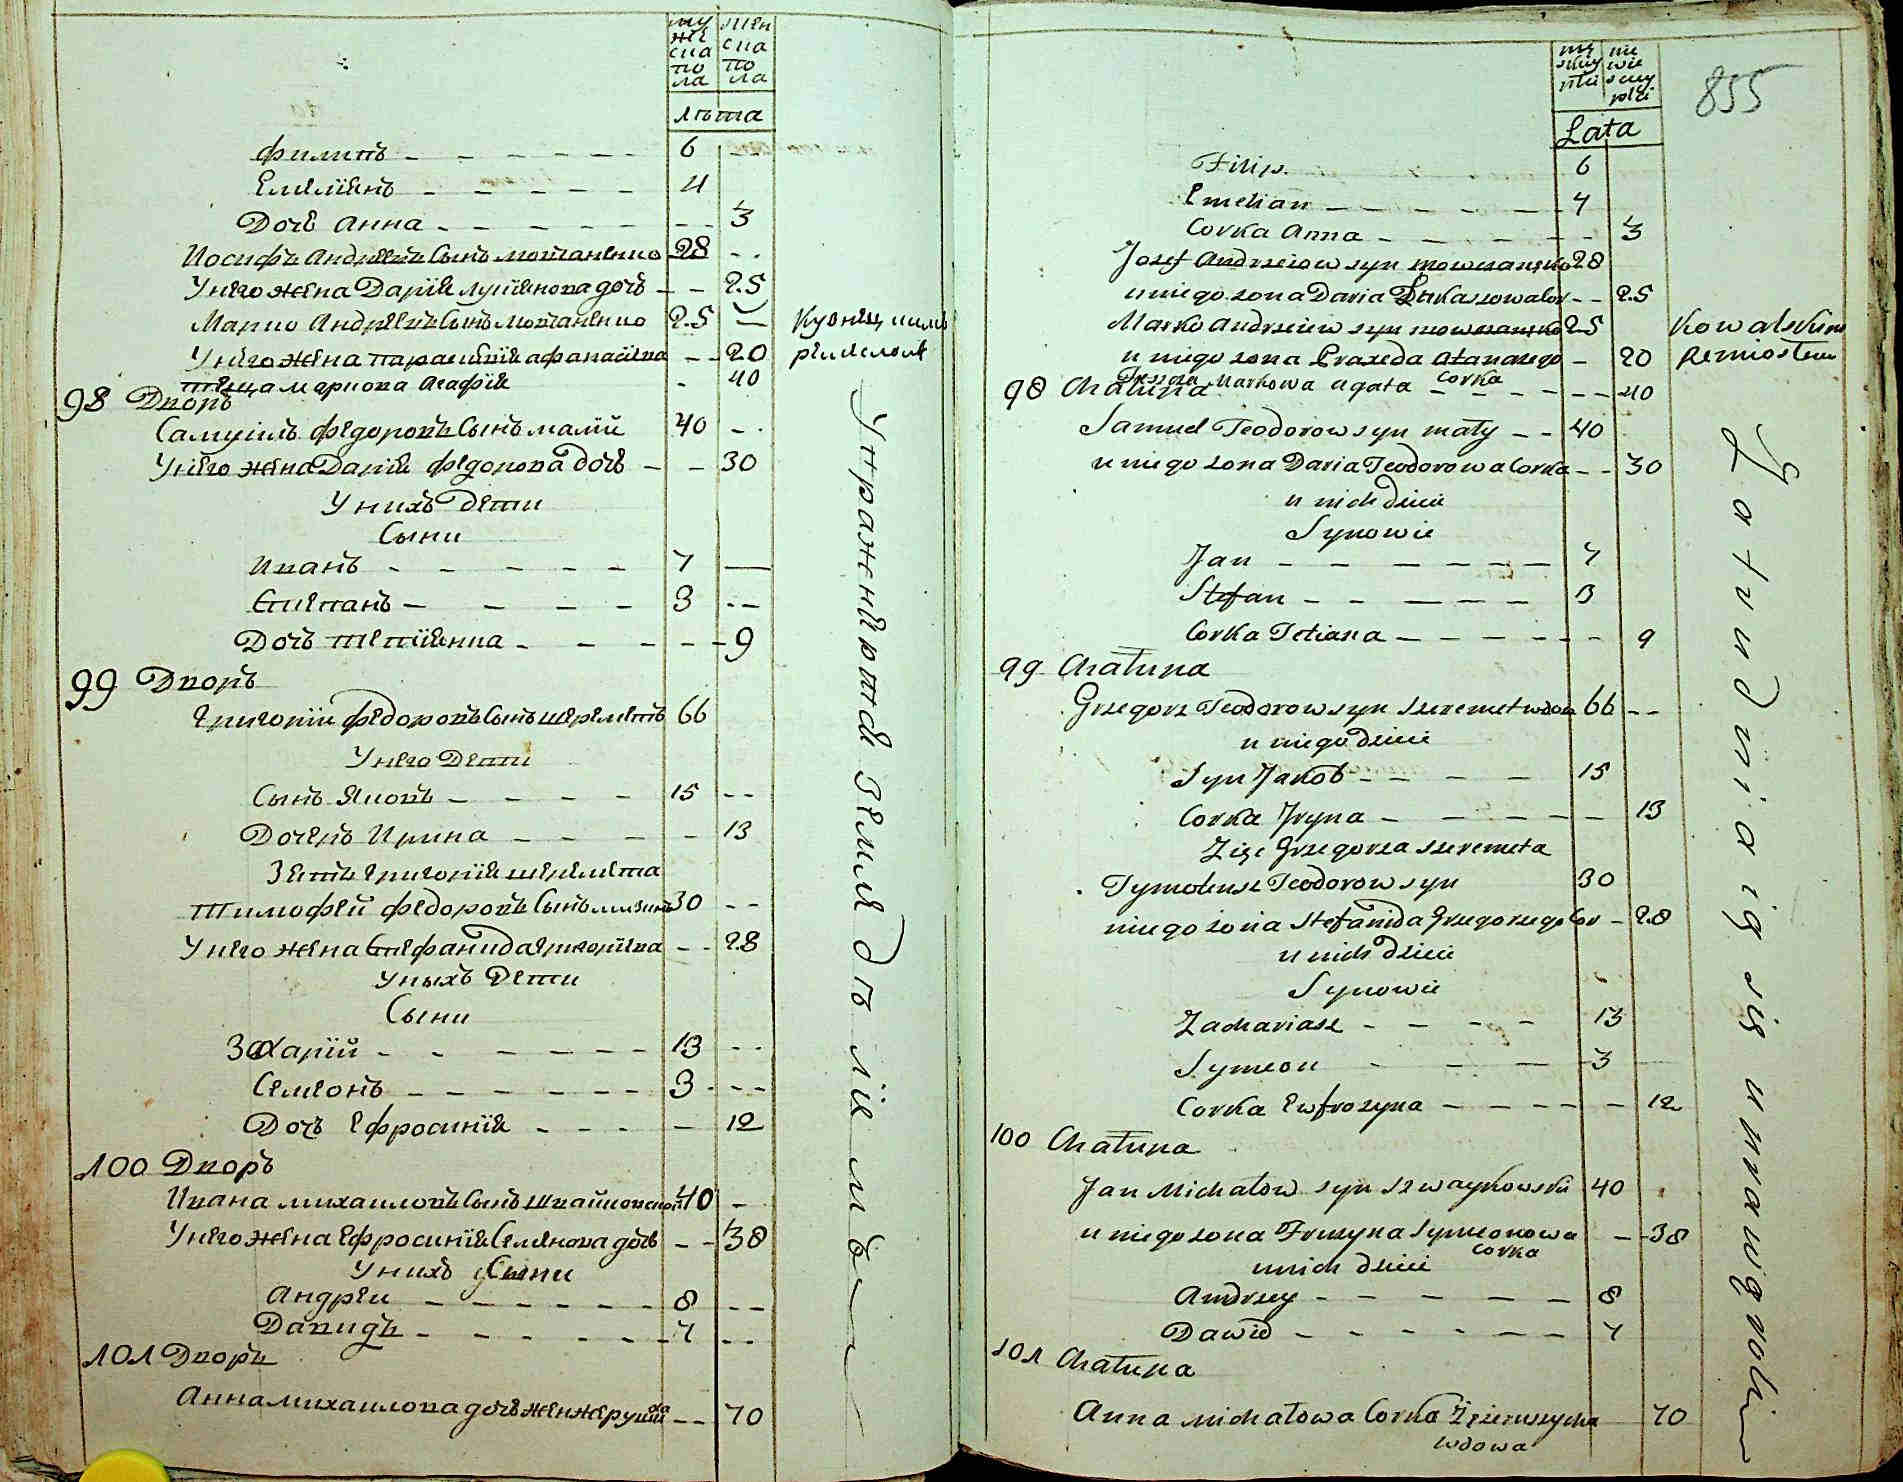 му
же
ска
по
ла
жен
ска
по
ла
лѣта
Филипъ 6
Емелїянъ 4
Дочь Анна 3
Иосифъ Андреевъ сынъ 28
У него жена Дарїя дочь 25
Марко Андреевъ сынъ 25 кузнецкимъ
У него жена Параскевїя Афанасїева 20 ремесломъ
теща Маркова Агафїя 40
98 Дворъ
Самуилъ Федоровъ сынъ малїй 40
У него жена Дарїя Федорова дочь 30
У нихъ дети
Сыни
Иванъ 7
Стиепанъ 3
Дочь Тетїянна 9
99 Дворъ
Григорїи Федоровъ сынъ Шереметъ 66
У него Дети
Сынъ Яковъ 15
Дочеръ Ирина 13
Зеть Григорїя Шеремета
Тимофей Федоровъ сынъ 30
У него жена Стефанида Григорїева 28
У ныхъ Дети
Сыни
Захарїй 13
Семионъ 3
Дочь Ефросинїя 12
100 Дворъ
Ивана Михаиловъ сынъ Швайковской 40
У него жена Ефросинїя Семенова дочь 38
У нихъ Сыни
Андреи 8
Давидъ 7
101 Дворъ
Анна Михаилова дочь 70
Упражняются земледѣліемъ
855
mę
skiey
płci
nie
wie
sciey
płci
Lata
Filip 6
Emelian 4
Corka Anna 3
Jozef Andrzeiow syn 28
u niego zona Daria Łukaszowa Cor 25
Marko Andrzeiew syn 25 Kowalskim
u niego zona Praxeda Atanazego 20 Remiosłem
Teszcza Markowa Agata Corka 40
98 Chałupa
Samuel Teodorow syn mały 40
u niego zona Daria Teodorowa Corka 30
u nich dzieci
Synowie
Jan 7
Stefan 3
Corka Tetiana 9
99 Chałupa
Grzegorz Teodorow syn Szeremet wdow 66
u niego dzieci
Syn Jakob 15
Corka Jryna 13
Zięc Grzegorza Szeremeta
Tymoteusz Teodorow syn 30
niego zona Stefanida Grzegorzego Cor 28
u nich dzieci
Synowie
Zachariasz 13
Symeon 3
Corka Ewfrozyna 12
100 Chałupa
Jan Michałow syn Szwaykowski 40
u niego zona Fruzyna Symeonowa 38
Corka
u nich dzieci
Andrzey 8
Dawid 7
101 Chałupa
Anna Michałowa Corka 70
wdowa
Zatrudniaią się uprawą roli